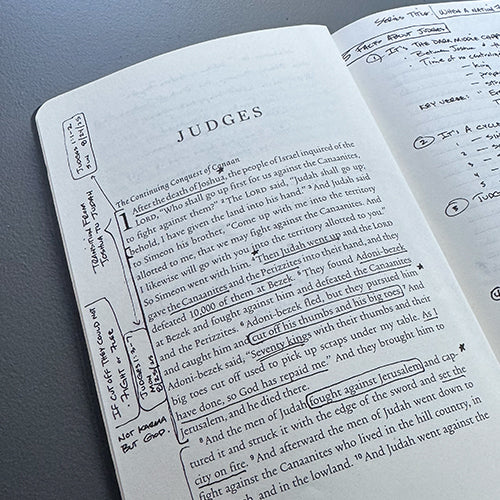 JUDGES
The Continuing Conquest of Canaan
1 After the death of Joshua, the people of Israel inquired of the
LORD, "Who shall go up first for us against the Canaanites,
to fight against them?" 2 The LORD said, "Judah shall go up;
behold, I have given the land into his hand." 3 And Judah said
to Simeon his brother, "Come up with me into the territory
allotted to me, that we may fight against the Canaanites. And
I likewise will go with you into the territory allotted to you."
So Simeon went with him. 4 Then Judah went up and the LORD
gave the Canaanites and the Perizzites into their hand, and they
defeated 10,000 of them at Bezek. 5 They found Adoni-bezek
at Bezek and fought against him and defeated the Canaanites
and the Perizzites. 6 Adoni-bezek fled, but they pursued him
and caught him and cut off his thumbs and his big toes. 7 And
Adoni-bezek said, "Seventy kings with their thumbs and their
big toes cut off used to pick up scraps under my table. As I
have done, so God has repaid me." And they brought him to
Jerusalem, and he died there.
8 And the men of Judah fought against Jerusalem and cap-
tured it and struck it with the edge of the sword and set the
city on fire. 9 And afterward the men of Judah went down to
fight against the Canaanites who lived in the hill country, in
and in the lowland. 10 And Judah went against the
JUDGES 1:1-2
SUN 8/24/25
TRANSITION FROM
JOSHUA TO JUDAH
JUDGES 1:3-7
MON
8/25/25
IF CUT OFF THEY COULD NOT
FIGHT OR
NOT KARMA
BUT GOD.
SERIES TITLE: WHEN A NATION
5 FACTS ABOUT JUDGES
1 IT'S THE DARK MIDDLE
Between Joshua &
Time of no
- King
KEY VERSE:
2 IT'S A CYCLE
3 JUDGES